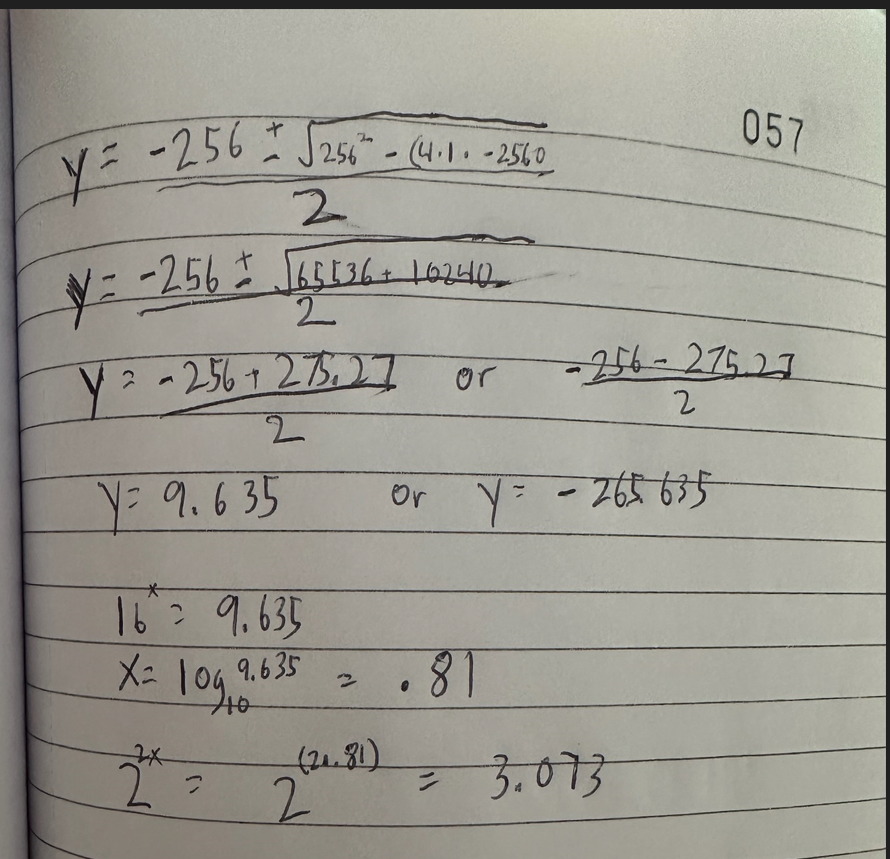 057
y = -256 ± √256² - (4·1·-2560
2
y = -256 ± √65536 + 10240
2
y = -256 + 275.27 or -256 - 275.27
2 2
y = 9.635 or y = -265.635
16^x = 9.635
x = log₁₆ 9.635 = .81
2^2x = 2^(2·.81) = 3.073